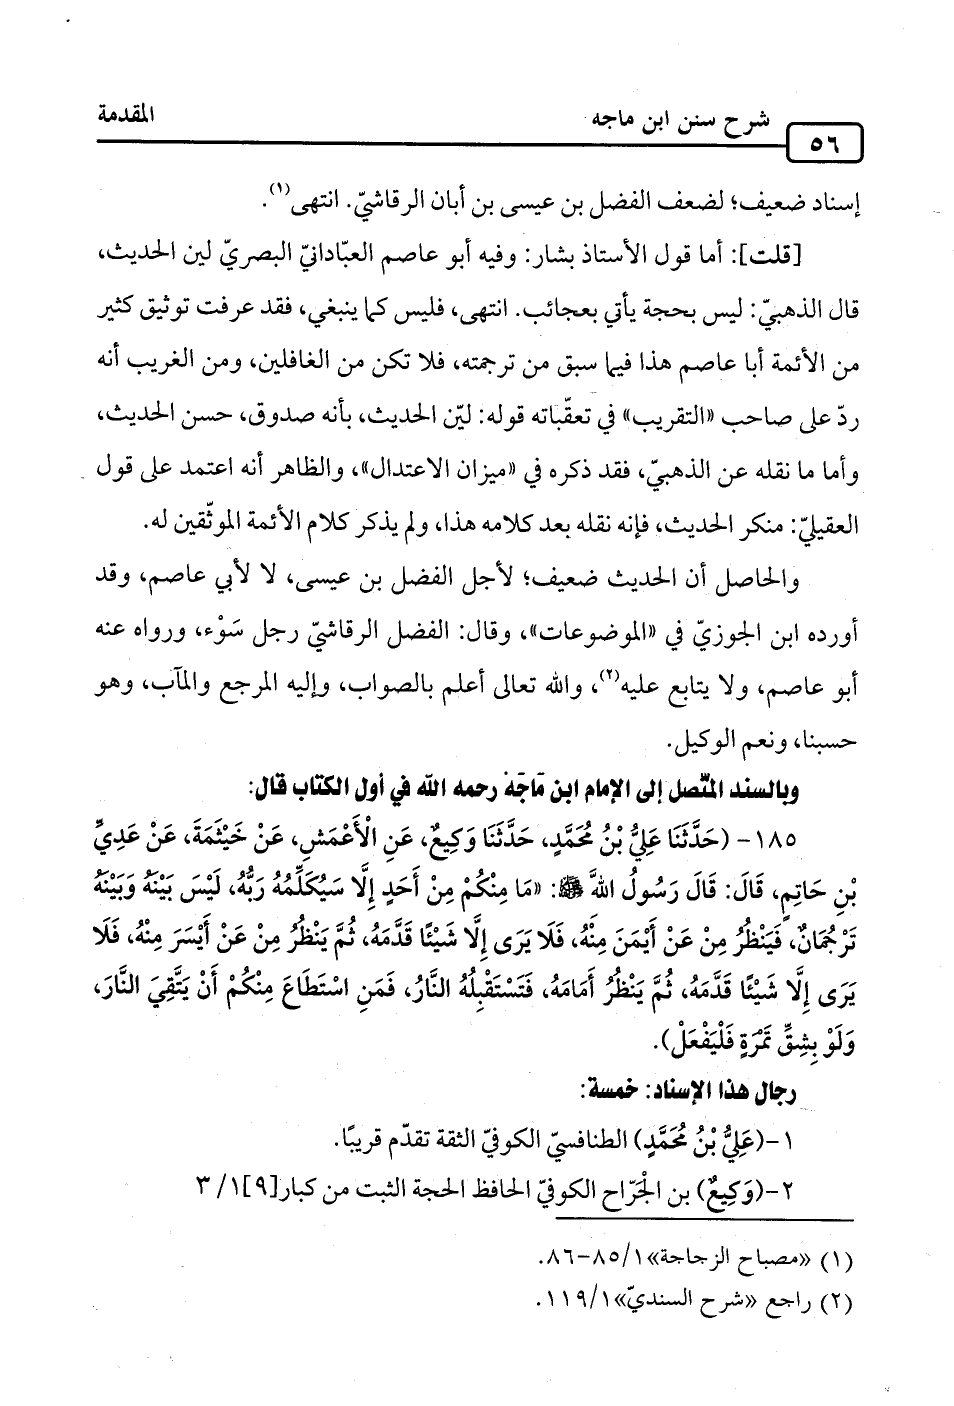 شرح سنن ابن ماجه
المقدمة
٥٦
إسناد ضعيف؛ لضعف الفضل بن عيسى بن أبان الرقاشيّ. انتهى(١).
[قلت]: أما قول الأستاذ بشار: وفيه أبو عاصم العبّادانيّ البصريّ لين الحديث،
قال الذهبيّ: ليس بحجة يأتي بعجائب. انتهى، فليس كما ينبغي، فقد عرفت توثيق كثير
من الأئمة أبا عاصم هذا فيما سبق من ترجمته، فلا تكن من الغافلين، ومن الغريب أنه
ردّ على صاحب «التقريب» في تعقّباته قوله: ليّن الحديث، بأنه صدوق، حسن الحديث،
وأما ما نقله عن الذهبيّ، فقد ذكره في «ميزان الاعتدال»، والظاهر أنه اعتمد على قول
العقيليّ: منكر الحديث، فإنه نقله بعد كلامه هذا، ولم يذكر كلام الأئمة الموثّقين له.
والحاصل أن الحديث ضعيف؛ لأجل الفضل بن عيسى، لا لأبي عاصم، وقد
أورده ابن الجوزيّ في «الموضوعات»، وقال: الفضل الرقاشيّ رجل سَوْء، ورواه عنه
أبو عاصم، ولا يتابع عليه(٢)، والله تعالى أعلم بالصواب، وإليه المرجع والمآب، وهو
حسبنا، ونعم الوكيل.
وبالسند المتّصل إلى الإمام ابن مَاجَهْ رحمه الله في أول الكتاب قال:
١٨٥- (حَدَّثَنَا عَلِيُّ بْنُ مُحَمَّدٍ، حَدَّثَنَا وَكِيعٌ، عَنِ الْأَعْمَشِ، عَنْ خَيْثَمَةَ، عَنْ عَدِيِّ
بْنِ حَاتِمٍ، قَالَ: قَالَ رَسُولُ اللهَِّ ﷺ: «مَا مِنْكُمْ مِنْ أَحَدٍ إِلَّا سَيُكَلِّمُهُ رَبُّهُ، لَيْسَ بَيْنَهُ وَبَيْنَهُ
تَرْجُمَانٌ، فَيَنْظُرُ مِنْ عَنْ أَيْمَنَ مِنْهُ، فَلَا يَرَى إِلَّا شَيْئًا قَدَّمَهُ، ثُمَّ يَنْظُرُ مِنْ عَنْ أَيْسَرَ مِنْهُ، فَلَا
يَرَى إِلَّا شَيْئًا قَدَّمَهُ، ثُمَّ يَنْظُرُ أَمَامَهُ، فَتَسْتَقْبِلُهُ النَّارُ، فَمَنِ اسْتَطَاعَ مِنْكُمْ أَنْ يَتَّقِيَ النَّارَ،
وَلَوْ بِشِقِّ تَمْرَةٍ فَلْيَفْعَلْ).
رجال هذا الإسناد: خمسة:
١-(عَلِيُّ بْنُ مُحَمَّدٍ) الطنافسيّ الكوفيّ الثقة تقدّم قريبًا.
٢-(وَكِيعٌ) بن الجَرّاح الكوفيّ الحافظ الحجة الثبت من كبار[٩]١/ ٣
(١) «مصباح الزجاجة»١/ ٨٥-٨٦.
(٢) راجع «شرح السنديّ»١/ ١١٩.